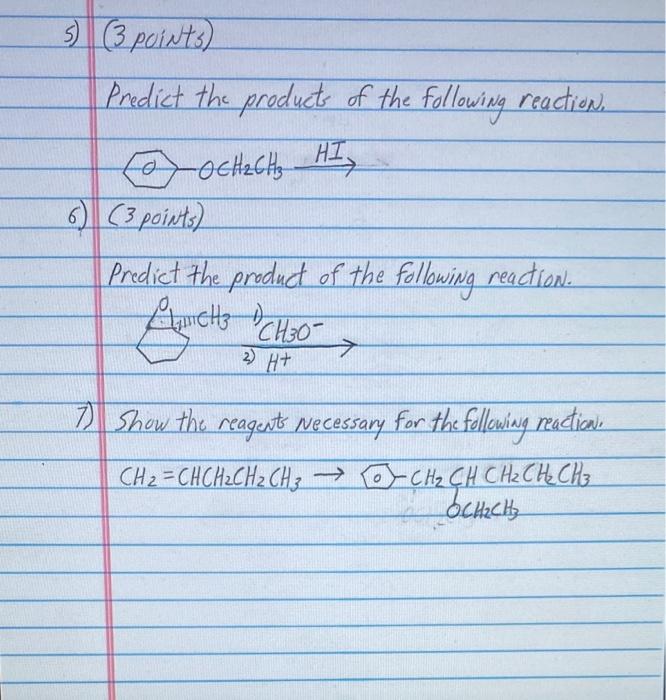 5) (3 points)
Predict the products of the following reaction.
O OCH2CH3 HI
6) (3 points)
Predict the product of the following reaction.
O CH3 1) CH3O-
2) H+
7) Show the reagents necessary for the following reaction.
CH2=CHCH2CH2CH3 → O CH2CHCH2CH2CH3
OCH2CH3